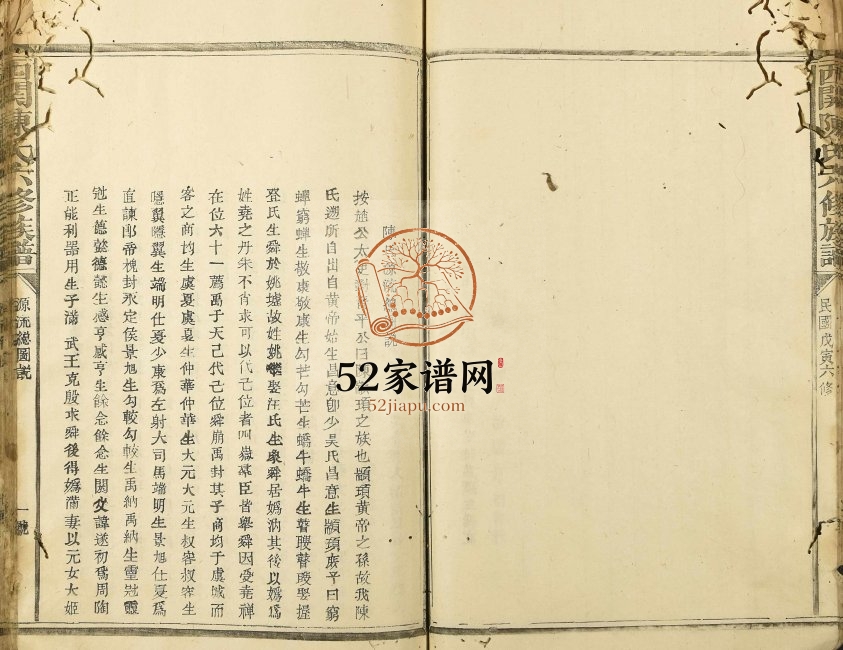 西關陳氏六修族譜
民國戊寅六修
陳
說
按 公太史 平公曰 頊之族也顓頊黃帝之孫故我陳
氏遡所自出自黃帝始生昌意卽少昊氏昌意生顓頊庶子曰窮
蟬窮蟬生敬康敬康生勾芒勾芒生蟜牛蟜牛生瞽瞍瞽瞍娶握
登氏生舜於姚墟故姓姚 娶 氏生 舜居媯汭其後以媯爲
姓堯之丹朱不肖求可以代己位者四嶽羣臣皆舉舜因受堯禪
在位六十一薦禹于天己代己位舜崩禹封其子商均于虞城而
客之商均生虞夏虞夏生仲華仲華生大元大元生叔容叔容生
隱翼隱翼生端明仕夏少康爲左射大司馬端明生景旭仕夏爲
直諫 帝槐封永定侯景旭生勾較勾較生禹納禹納生靈冠靈
冠生德懿德懿生感亨感亨生餘念餘念生閼父諱遂初爲周陶
正能利器用生子滿 武王克殷求舜後得媯滿妻以元女大姬
源流總圖說
一號
西關陳氏六修族譜
52家谱网
52jiapu.com